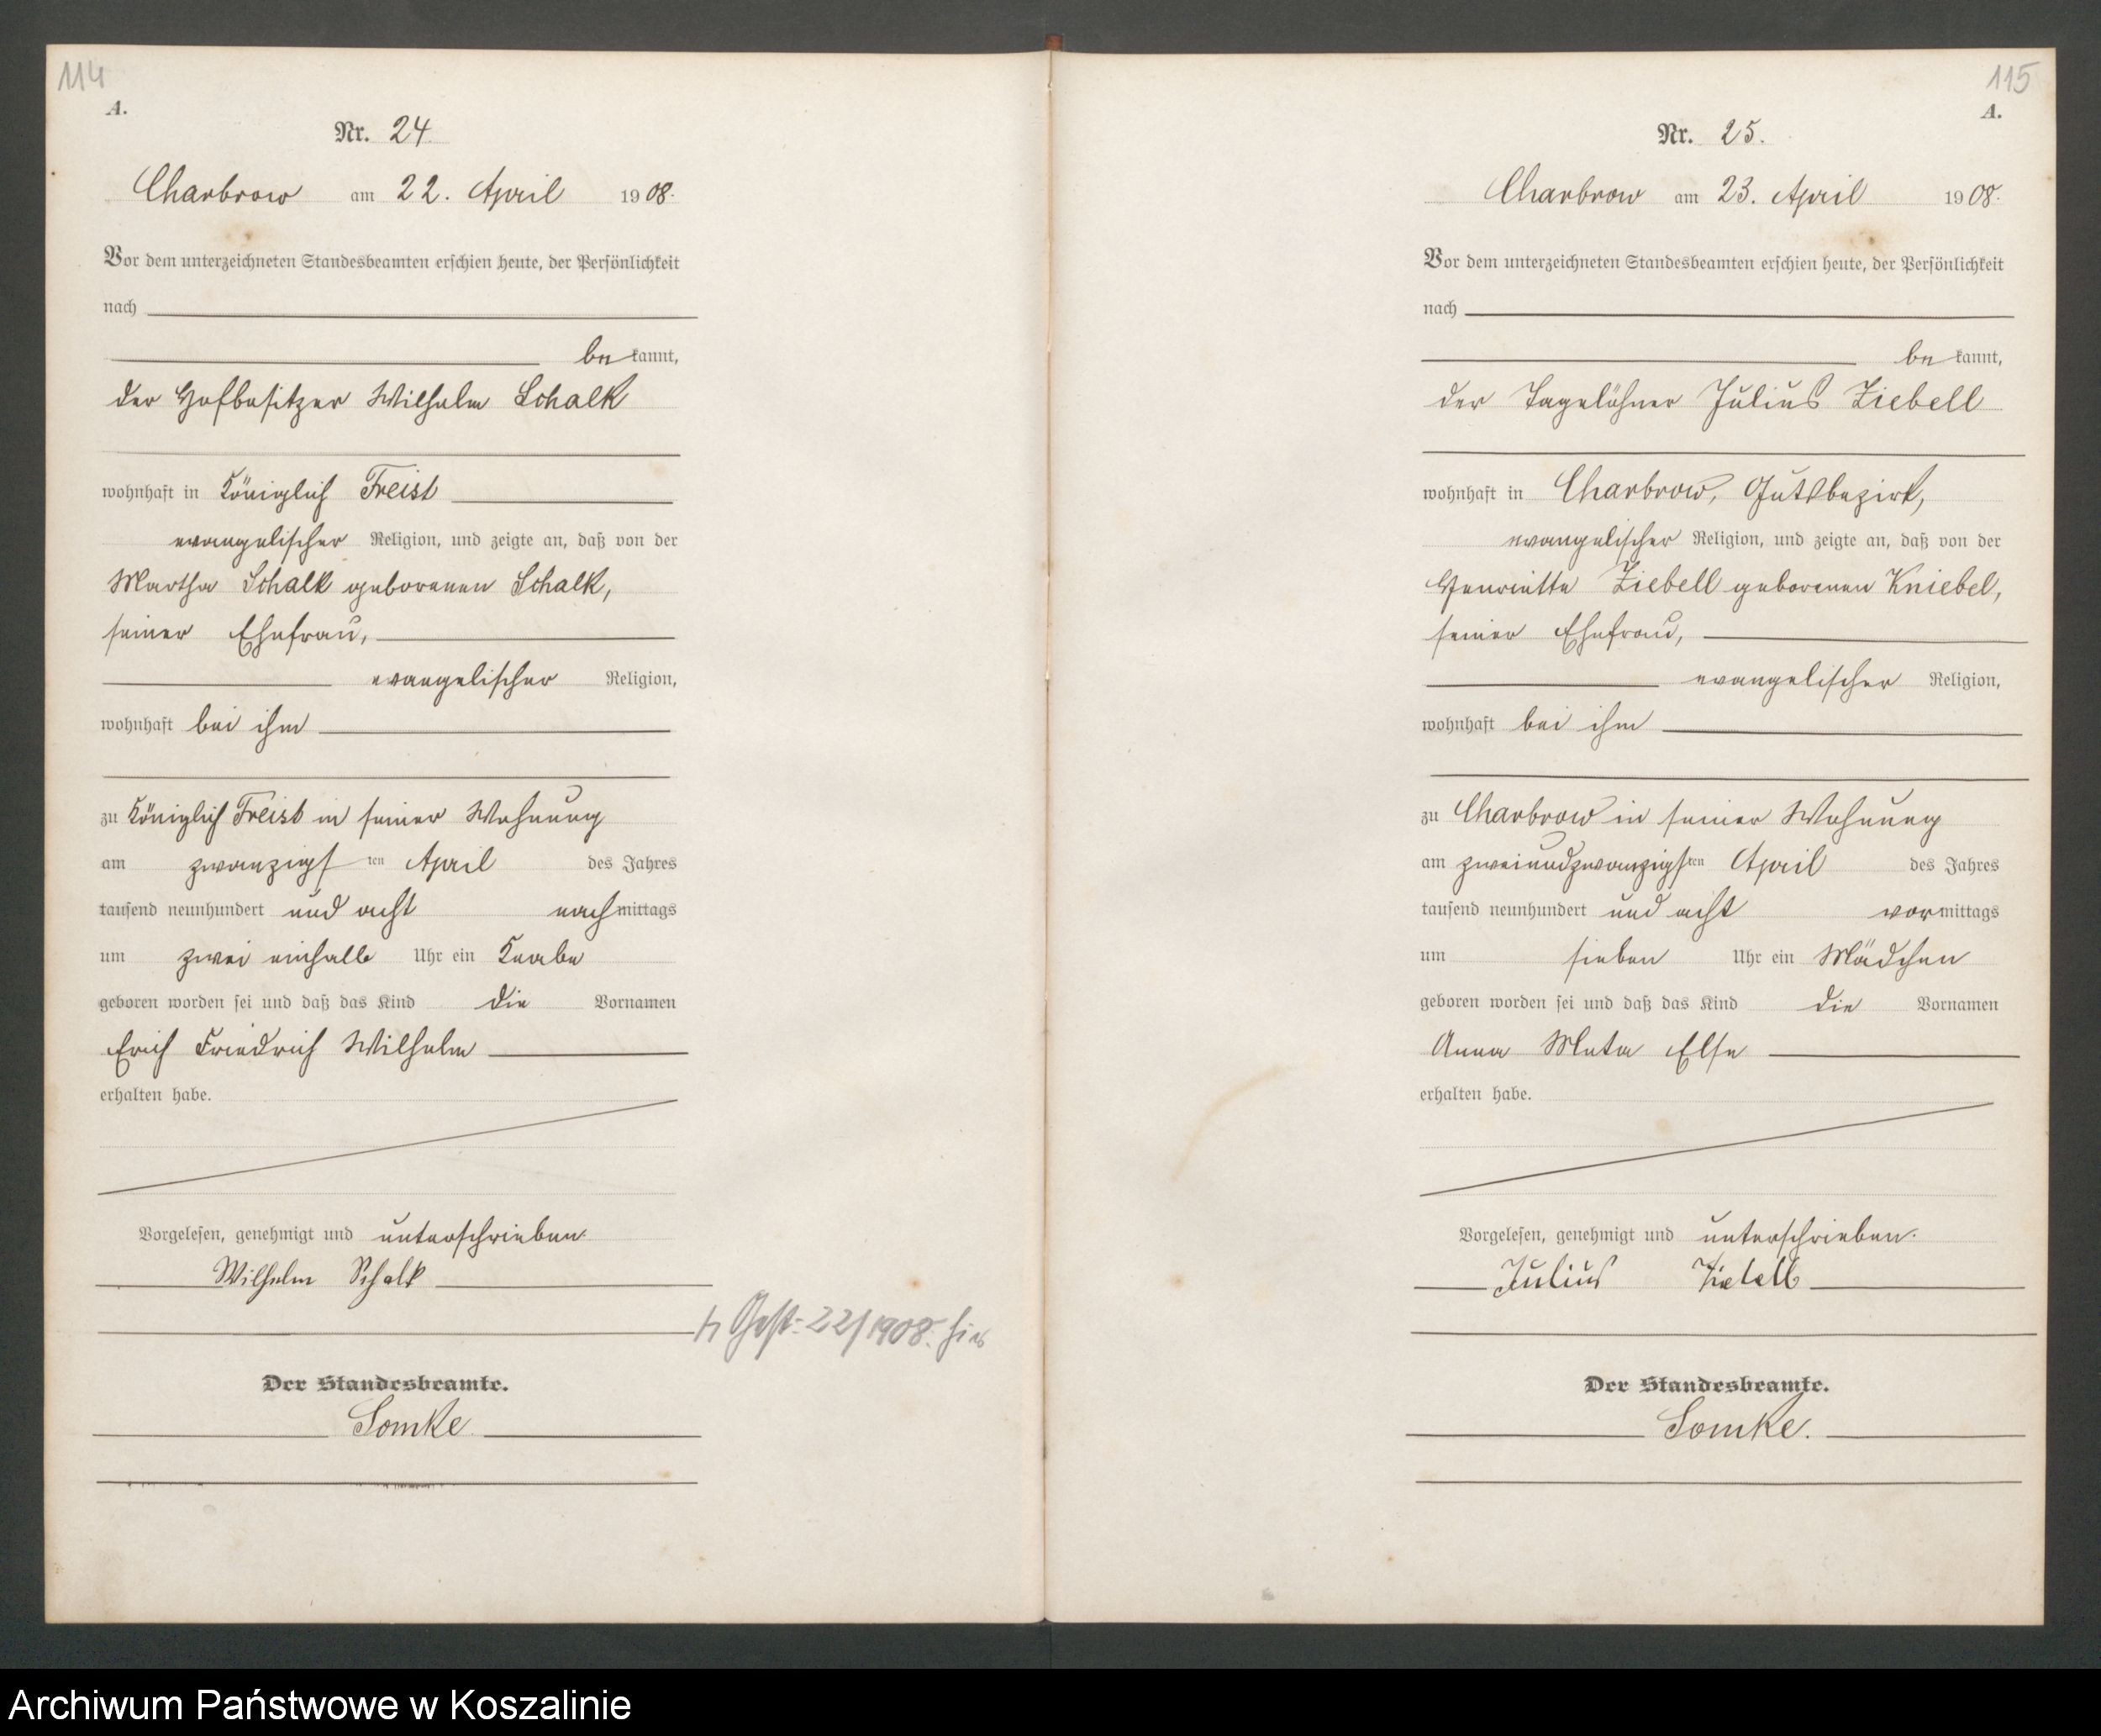 114
A.
Nr. 24.
Charbrow am 22. April 1908.
Vor dem unterzeichneten Standesbeamten erschien heute, der Persönlichkeit
nach
be kannt,
der Hofbesitzer Wilhelm Schalk
wohnhaft in Königlich Freist
evangelischer Religion, und zeigte an, daß von der
Martha Schalk geborenen Schalk,
seiner Ehefrau,
evangelischer Religion,
wohnhaft bei ihm
zu Königlich Freist in seiner Wohnung
am zwanzigsten April des Jahres
tausend neunhundert und acht nachmittags
um zwei einhalb Uhr ein Knabe
geboren worden sei und daß das Kind die Vornamen
Erich Friedrich Wilhelm
erhalten habe.
Vorgelesen, genehmigt und unterschrieben.
Wilhelm Schalk
22/1908. hier
Der Standesbeamte.
Somke
115
A.
Nr. 25.
Charbrow am 23. April 1908.
Vor dem unterzeichneten Standesbeamten erschien heute, der Persönlichkeit
nach
be kannt,
der Tagelöhner Julius Ziebell
wohnhaft in Charbrow, Gutsbezirk,
evangelischer Religion, und zeigte an, daß von der
Henriette Ziebell geborenen Kniebel,
seiner Ehefrau,
evangelischer Religion,
wohnhaft bei ihm
zu Charbrow in seiner Wohnung
am zweiundzwanzigsten April des Jahres
tausend neunhundert und acht vormittags
um sieben Uhr ein Mädchen
geboren worden sei und daß das Kind die Vornamen
Anna Meta Else
erhalten habe.
Vorgelesen, genehmigt und unterschrieben.
Julius Ziebell
Der Standesbeamte.
Somke.
Archiwum Państwowe w Koszalinie